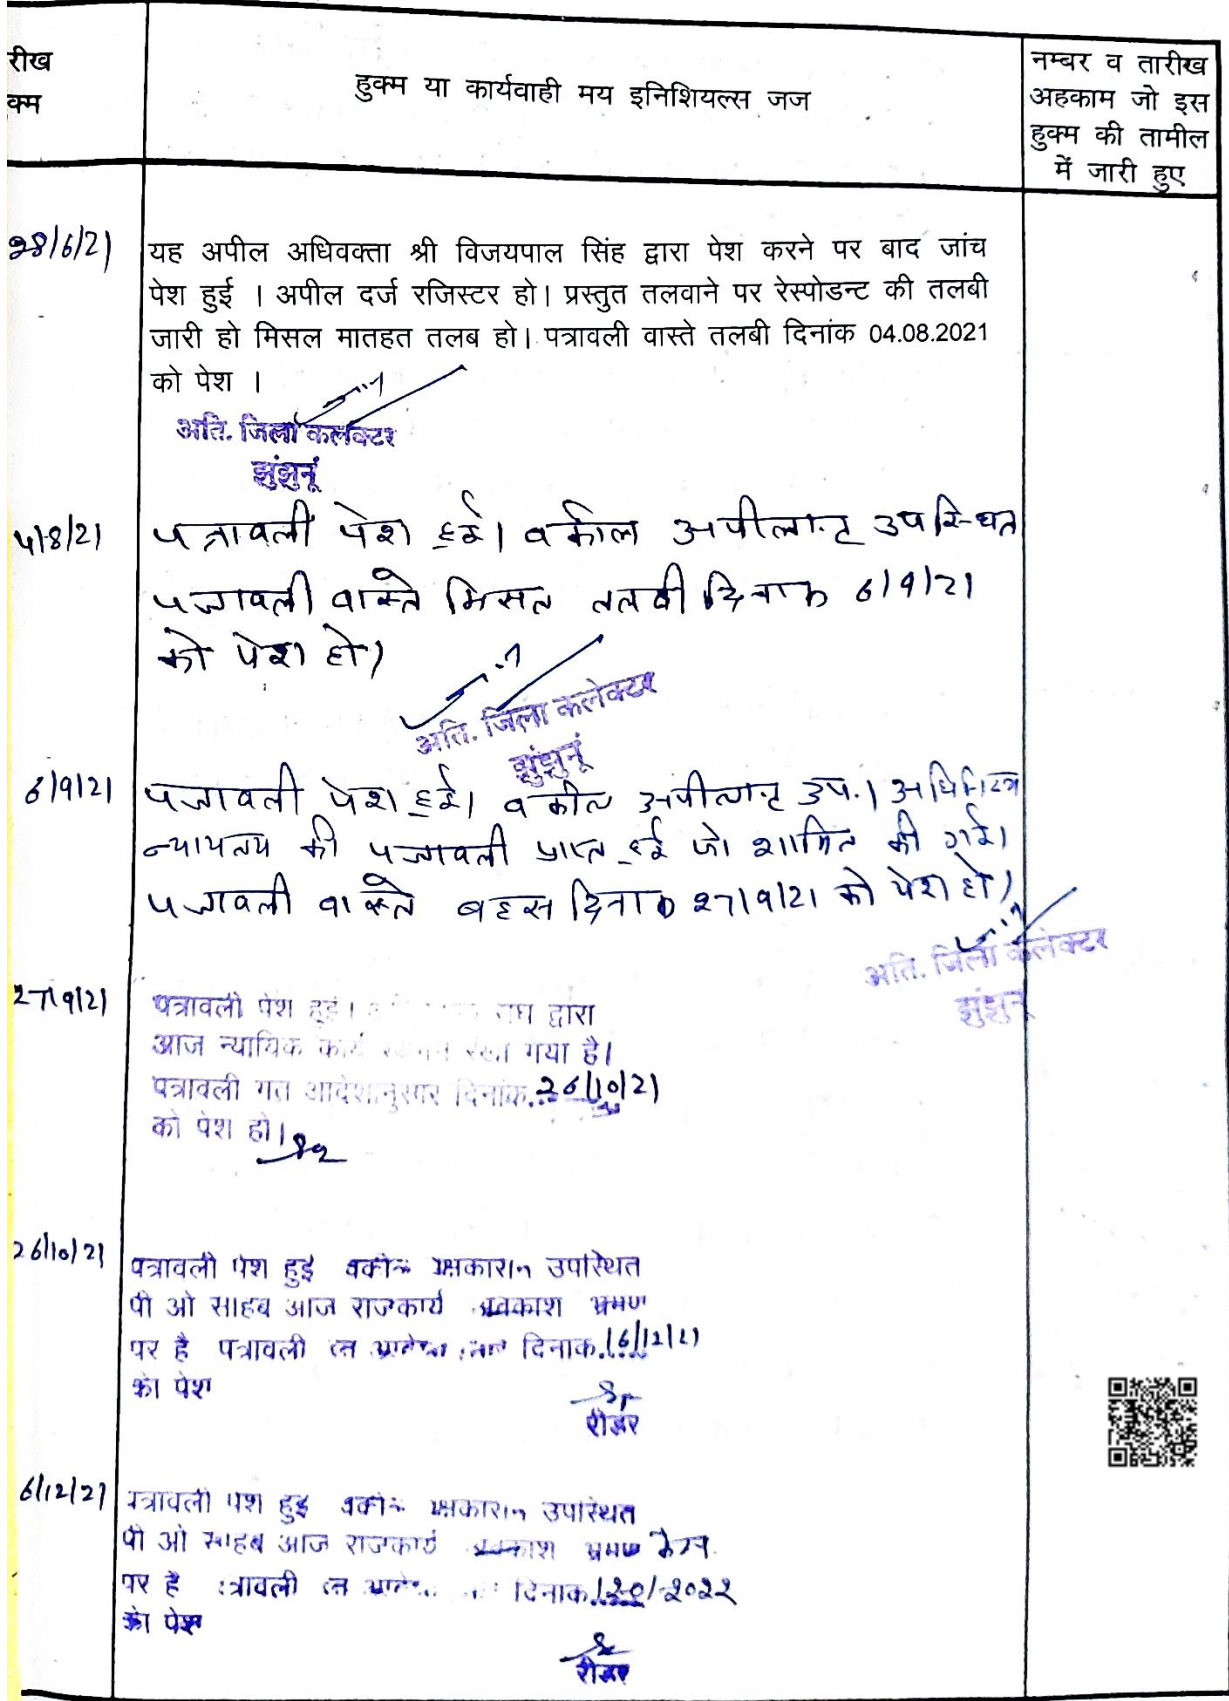 रीख
क्म
हुक्म या कार्यवाही मय इनिशियल्स जज
नम्बर व तारीख
अहकाम जो इस
हुक्म की तामील
में जारी हुए
28/6/21
यह अपील अधिवक्ता श्री विजयपाल सिंह द्वारा पेश करने पर बाद जांच
पेश हुई । अपील दर्ज रजिस्टर हो। प्रस्तुत तलवाने पर रेस्पोडन्ट की तलबी
जारी हो मिसल मातहत तलब हो। पत्रावली वास्ते तलबी दिनांक 04.08.2021
को पेश ।
अति. जिला कलेक्टर
झुंझुनूं
4/8/21
पत्रावली पेश हुई। वकील अपीलान्ट उपस्थित
पत्रावली वास्ते मिसल तलबी दिनांक 6/9/21
को पेश हो।
अति. जिला कलेक्टर
झुंझुनूं
6/9/21
पत्रावली पेश हुई। वकील अपीलान्ट उप.।
न्यायलय की पत्रावली प्राप्त हुई जो शामिल की गई।
पत्रावली वास्ते बहस दिनांक 27/9/21 को पेश हो।
अति. जिला कलेक्टर
झुंझुनूं
27/9/21
पत्रावली पेश हुई। संघ द्वारा
आज न्यायिक कार्य स्थगन रखा गया है।
पत्रावली गत आदेशानुसार दिनांक. 26/10/21
को पेश हो।
26/10/21
पत्रावली पेश हुई वकील पक्षकारान उपस्थित
पी ओ साहब आज राजकार्य अवकाश भ्रमण
पर है पत्रावली दिनांक. 16/12/21
को पेश
रीडर
6/12/21
पत्रावली पेश हुई वकील पक्षकारान उपस्थित
पी ओ साहब आज राजकार्य अवकाश भ्रमण
पर है पत्रावली दिनांक
को पेश
रीडर